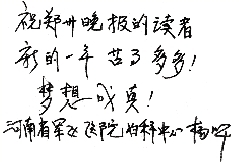 祝郑州晚报的读者
新的一年 喜事多多！
梦想成真！
河南省军区医院妇科中心 杨